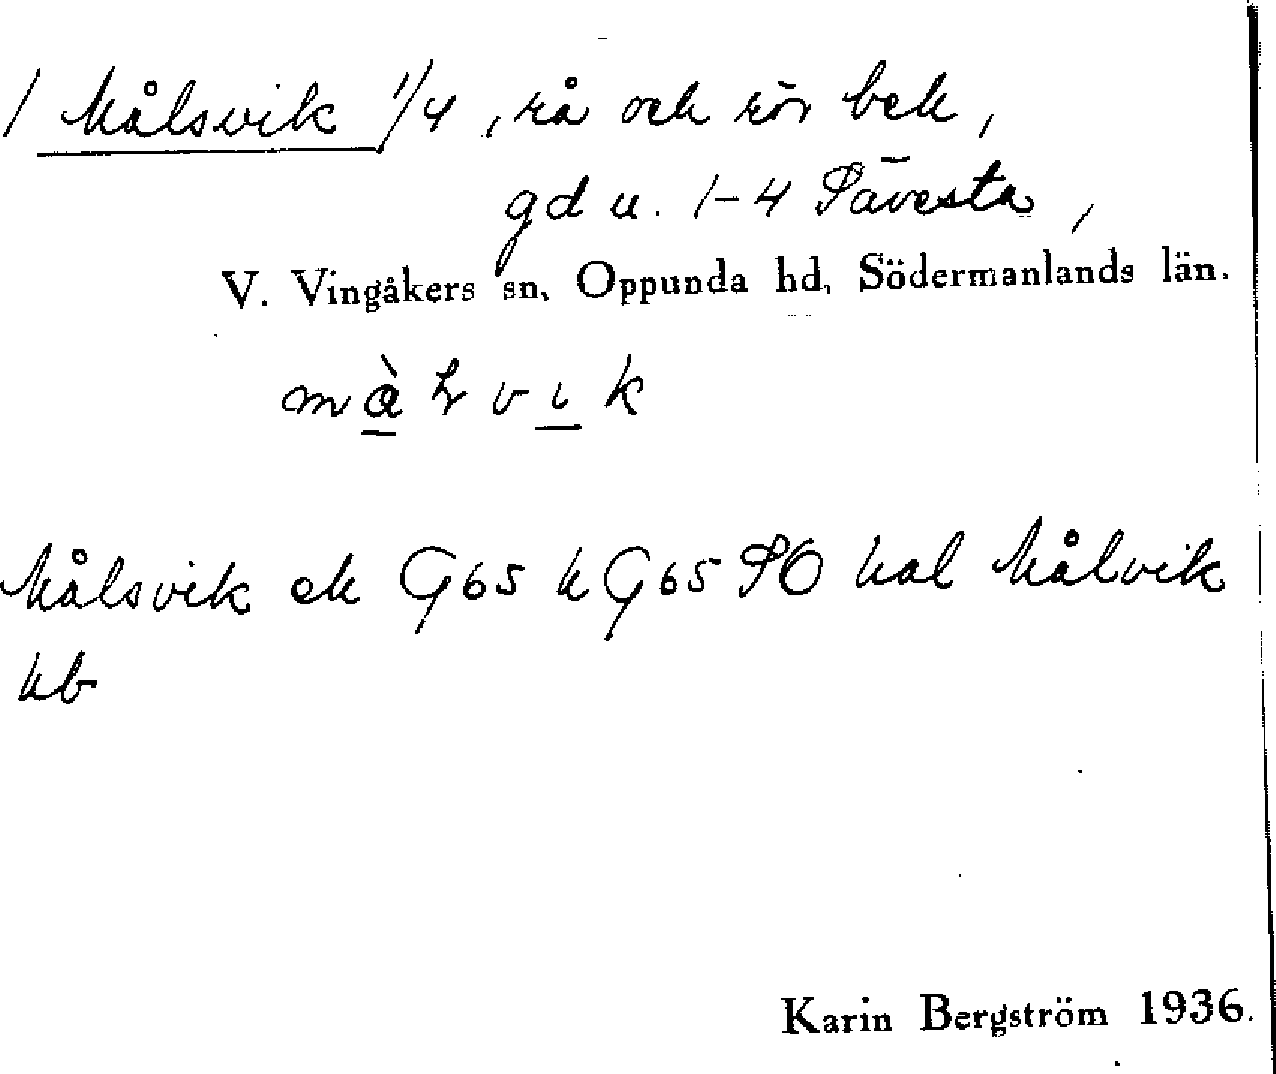 / Målsvik 1/4, rå och rör bek,
gd u. 1-4 Pävesta,
V. Vingåkers sn, Oppunda hd, Södermanlands län.
Målsvik ek G65 k G65 PO hal Målvik
kb
Karin Bergström 1936.